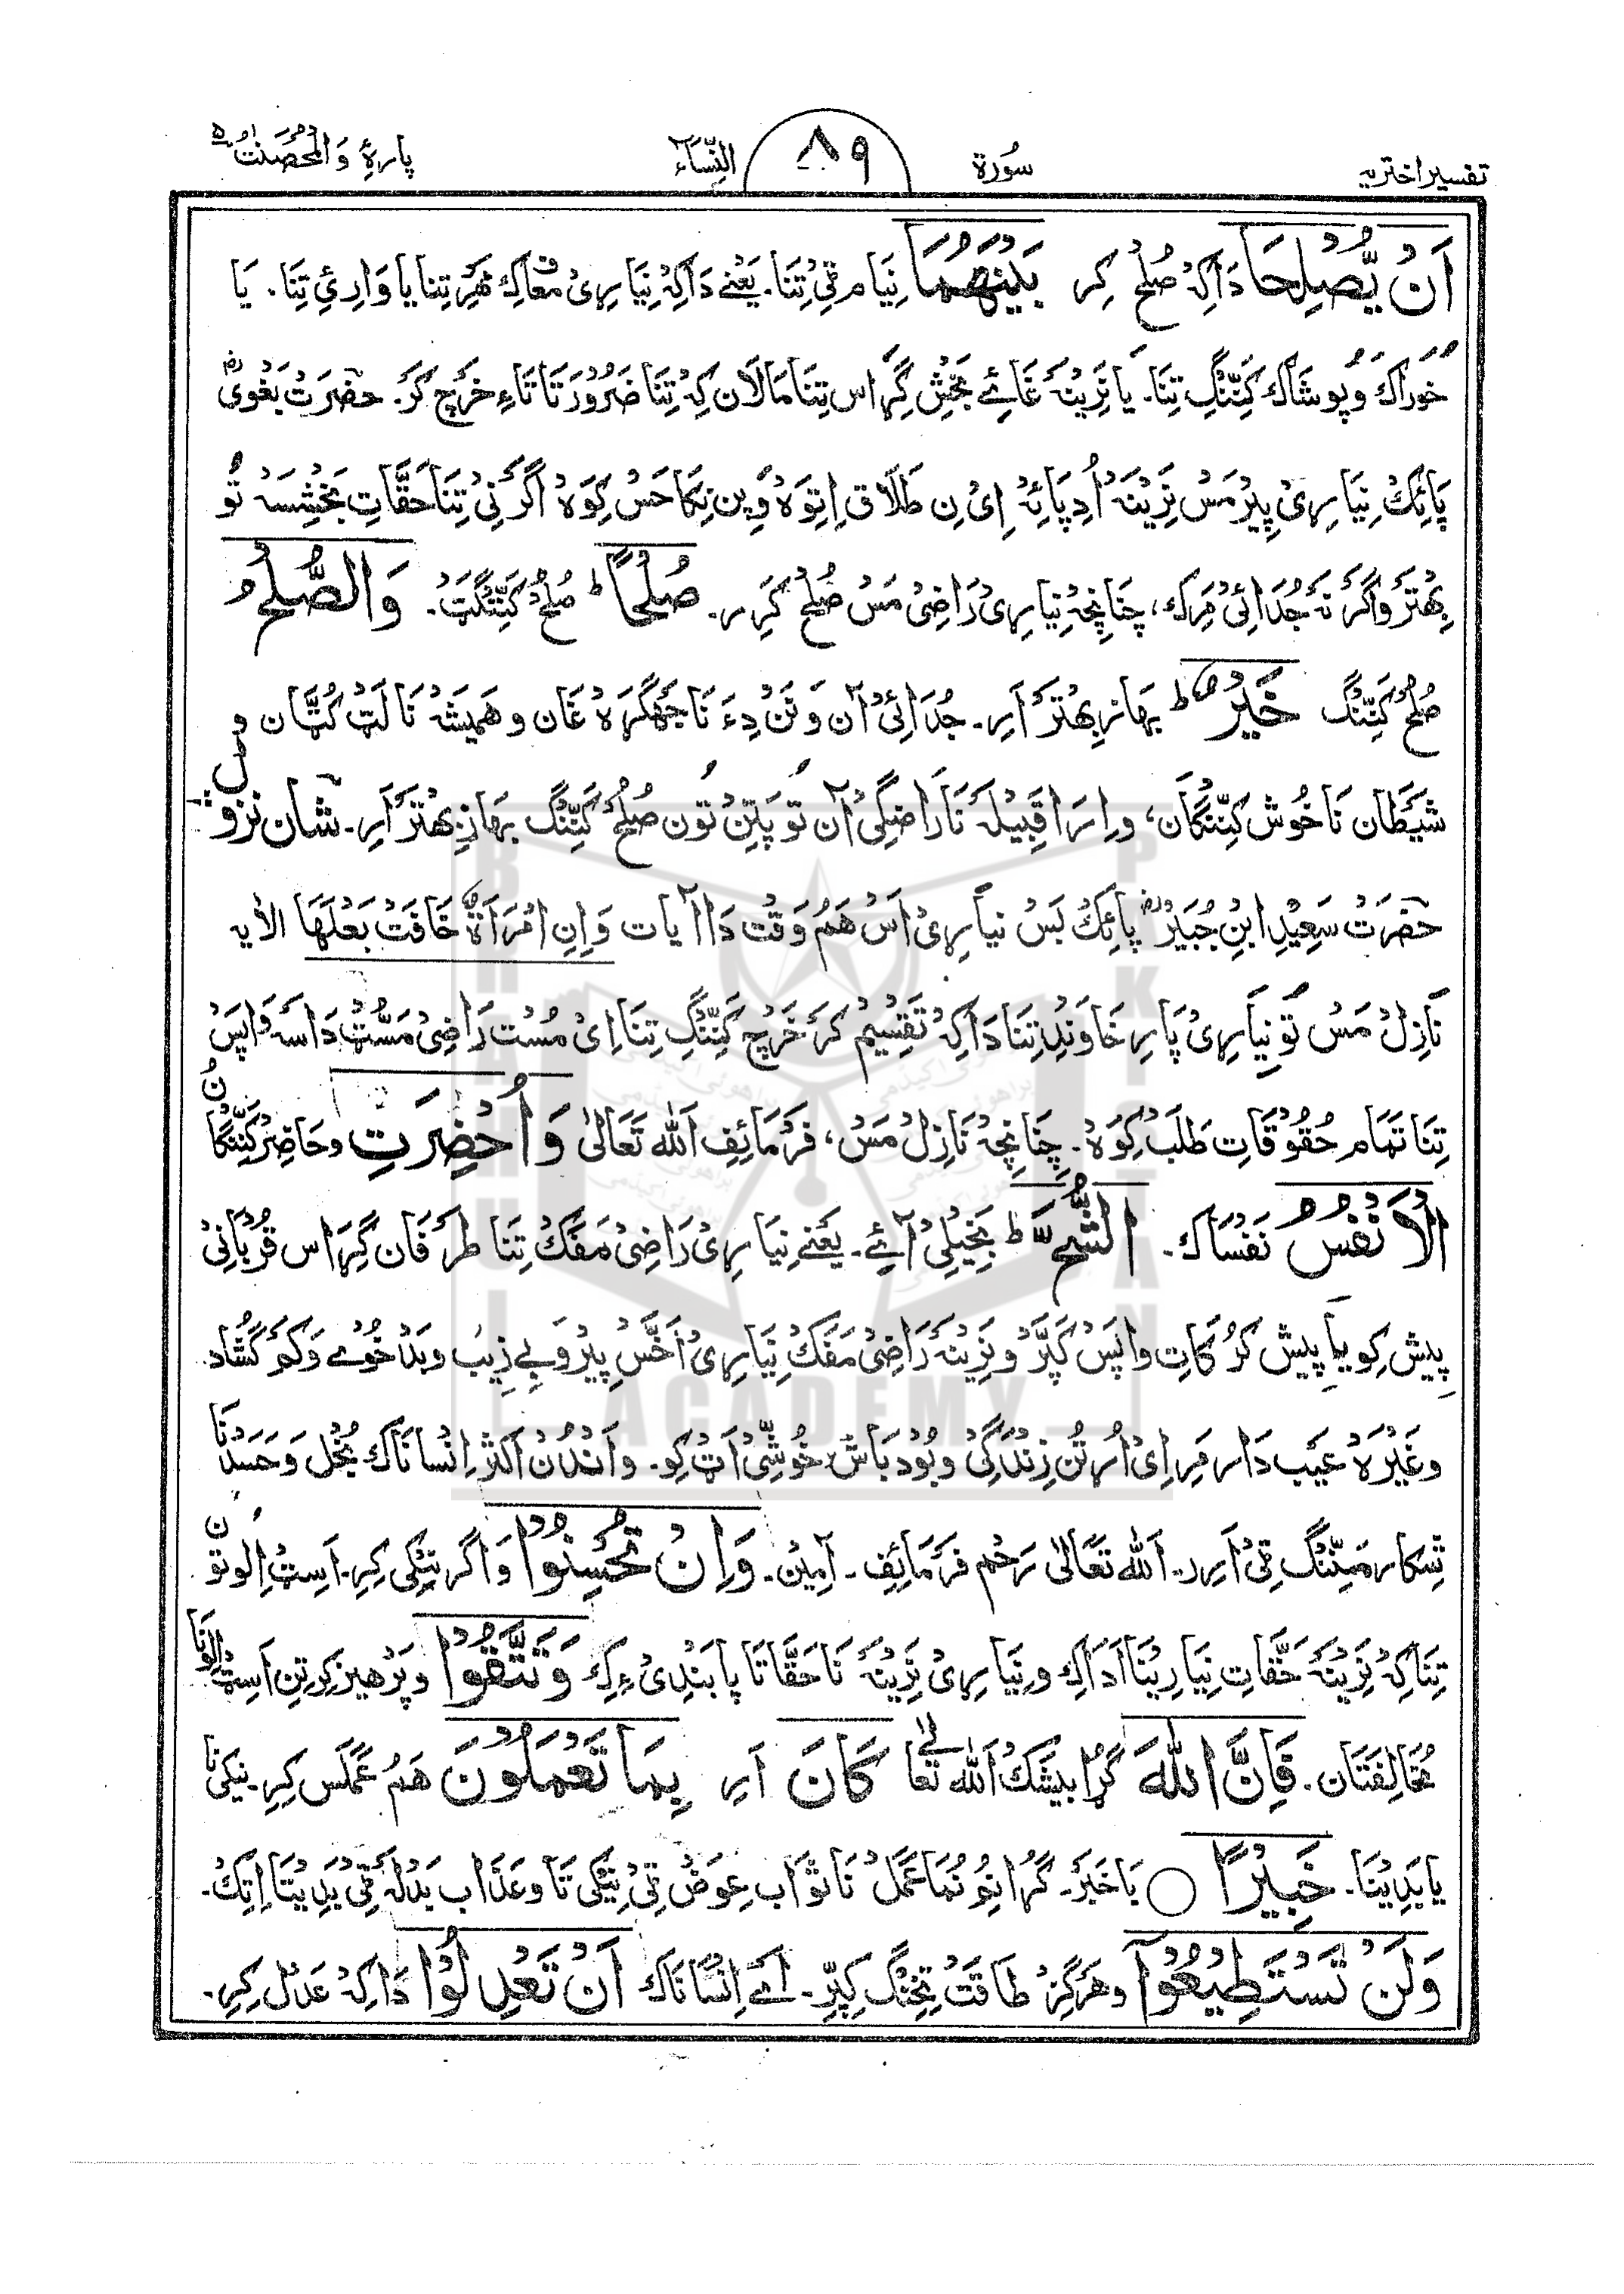 تفسیر اختریہ سُورۃ ۸۹ النِّسَآء پارۂ وَالمُحصَنٰتُ ۵
اَنۡ یُّصۡلِحَا دَاکِہ صُلح کِر بَیۡنَهُمَا نِیَام ٹِی تِنَا۔ یَعۡنے دَاکِہ نِیَاڑی مُعاف کِہ مَہر تِنا یا وَارِئِ تِنَا۔ یَا
خوراک وَ پوشَاک کَنِّنگِ تِنَا۔ یا نَرِینَہ غَائے بخشِ گِڑَاس تِنَا مَالَان کِہ تِنَا ضَرُورَتَاتَاءِ خرچ کَرَ۔ حضرَت بَغوی رح
پَائِکُ نِیَاڑی پِیر مَسُ نَرِینَہ اُدِ پَائِہ اِی نِ طَلَاق اِتِوَہ وَ پِن نِکاحَس کِوَہ اگر نِی تِنَا حَقَّاتِ بَخشِسَہ تَو
بِهتَر وَ اگر نَہ جُدَائی مَرِک، چنَانچِہ نِیَاڑی رَاضِی مَس صُلح کَرِر۔ صُلۡحًا ط صُلح کَنِّنگَتُ۔ وَ الصُّلۡحُ
صُلح کَنِّنگ خَیۡرٌ ط بهاز بِهتَر اَرِ۔ جُدَائی آن وَ تَن دِءَ نَا جَهگڑہ غَان و هَمِیشَہ نَا لَٹ کُٹَان و
شَیطَان نَا خُوش کَنِّنگان، و اِرَا قَبِیلَہ نَا رَاضگی آن تو پَتِن تون صُلح کَنِّنگ بهاز بِهتَر اَرِ۔ شان نزول
حضرَت سَعِید ابنِ جُبَیر رض پائِکُ بَس نیاڑی اَس هَم وَقت دَا آیات وَاِنِ امۡرَاَةٌ خَافَتۡ بَعۡلَهَا الایہ
نَازِل مَس تَو نِیَاڑی پَارِ خَاوَندِ تِنَا دَاکِہ تَقسِیم کَر خَرچ کَنِّنگِ تِنَا اِی مُست رَاضِی مَسُّٹ دَاسَہ وَاپَس
تِنَا تمام حُقوقَاتِ طَلَب کِوَہ۔ چنَانچِہ نَازِل مَس، فَرمَائِف اَللہ تَعَالٰی وَ اُحۡضِرَتِ و حَاضِر کَنِّنگان
الۡاَنۡفُسُ نَفسَاک۔ الشُّحَّ ط بَخِیلی آئے۔ یَعنے نِیَاڑی رَاضِی مَفَک تِنَا طَرفَان گِڑَاس قُربَانی
پِیش کِو یا پیش کَرُکَاتِ واپَس کَپَّر و نَرِینَہ رَاضِی مَفَک نِیَاڑی اَخَّس پِیر وَ بے زِیب و بَد خُوے وَ کَم کَشَّاد
وغَیرَہ عَیب دَار مَرِ اِی اُرٹُن زِندَگی و بُود بَاش خُوشِّی اَٹ کِو۔ و اَندُن اَکثَر اِنسَانَاک بُخل وَ حَسَد نَا
شِکار مَنِّنگ ٹِی اَرِر۔ اَللہ تَعَالٰی رَحم فَرمَائِف۔ آمِین۔ وَ اِنۡ تُحۡسِنُوۡا وَ اگر نیکی کِرِ۔ اَسِٹ اِلو تون
تِنَا کِہ نَرِینَہ حَقَّاتِ نِیَاڑِینَا اَدَا کِہ و نِیَاڑی نَرِینَہ نَا حَقَّاتَا پَابَندی ءِ کِہ وَ تَتَّقُوۡا و پَرهیز کِرِ تِن اَسِٹ اِلو نَا
مُخَالِفَتَان۔ فَاِنَّ اللّٰہَ گُڑَا بیشَک اَللہ تَعَالٰی کَانَ اَرِ بِمَا تَعۡمَلُوۡنَ هَم عَمَلَس کِرِ۔ نیکی نا
یا بَدِینَا۔ خَبِیۡرًا ○ بَا خَبَر۔ گُڑا نُم نُمَا عَمَل نَا ثَوَاب عِوَض ٹِی نیکی تَا و عَذَاب بَدلَہ ٹِی بَدِیتَا اِتِک۔
وَ لَنۡ تَسۡتَطِیۡعُوۡۤا و هَرگِز طَاقَت تخِنگ کِپِّرِ۔ اَے اِنسَانَاک اَنۡ تَعۡدِلُوۡا دَاکِہ عَدل کِرِ۔